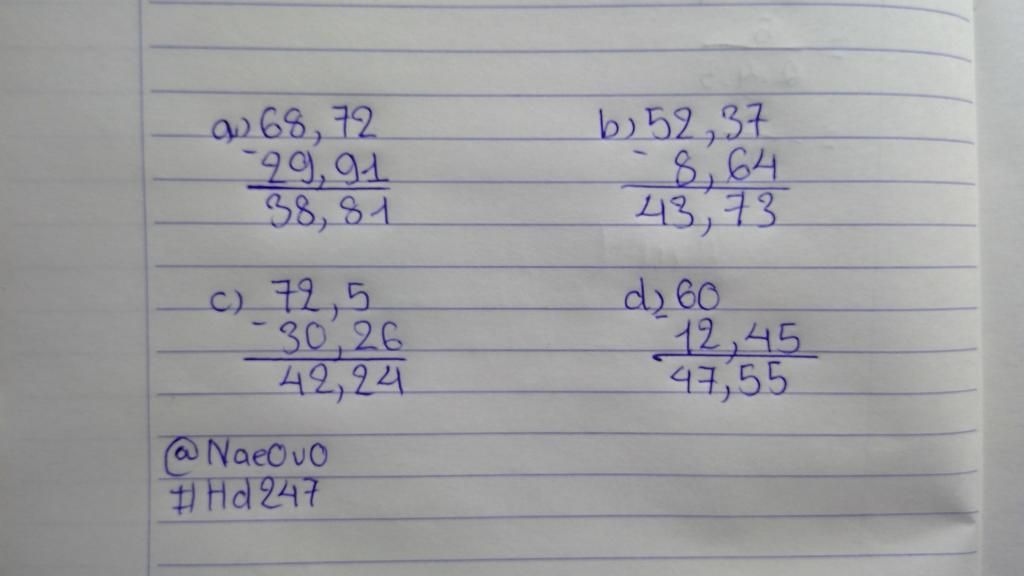 a) 68,72
- 29,91
38,81
b) 52,37
- 8,64
43,73
c) 72,5
- 30,26
42,24
d) 60
- 12,45
47,55
@NaeOvO
#Hd247